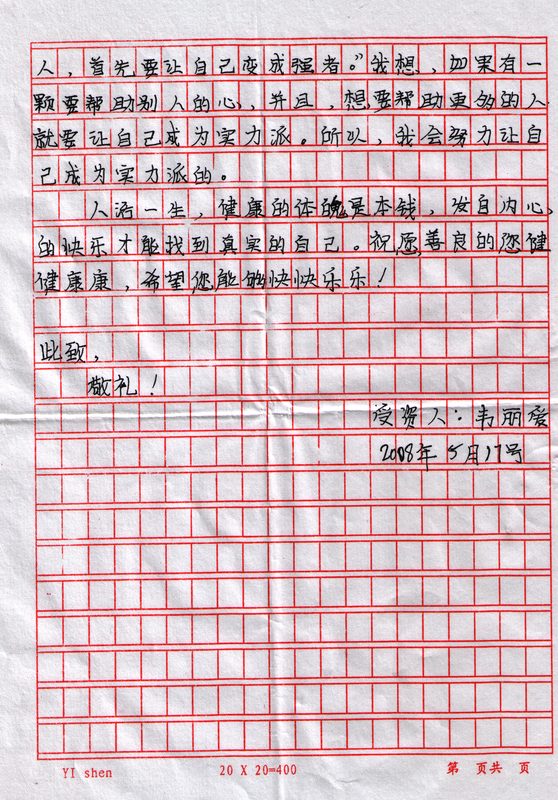 人，首先要让自己变成强者。”我想，如果有一
颗要帮助别人的心，并且，想要帮助更多的人
就要让自己成为实力派。所以，我会努力让自
己成为实力派的。
人活一生，健康的体魄是本钱，发自内心，
的快乐才能找到真实的自己。祝愿善良的您健
健康康，希望您能够快快乐乐！
此致，
敬礼！
受资人：韦丽爱
2008年5月17号
YI shen 20 X 20=400 第 页共 页